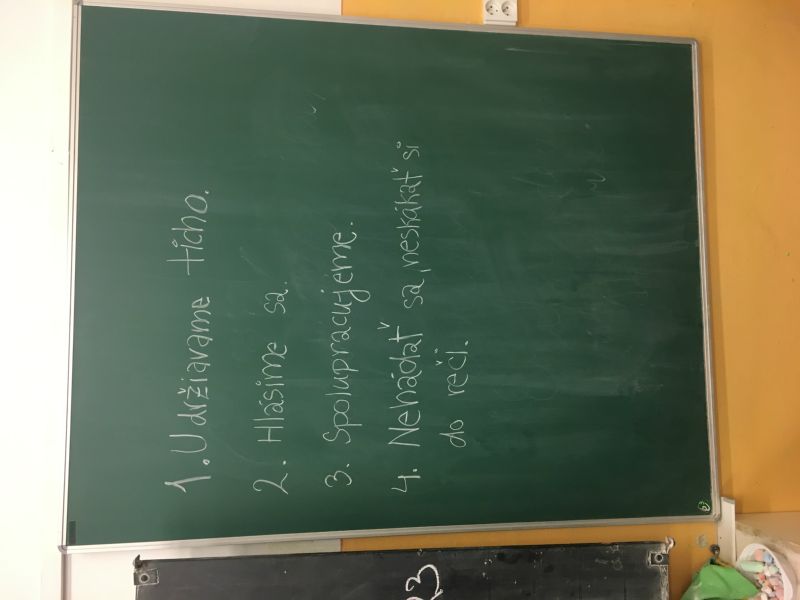 1. Udržiavame ticho.
2. Hlásime sa.
3. Spolupracujeme.
4. Nehádať sa, neskákať si
do reči.